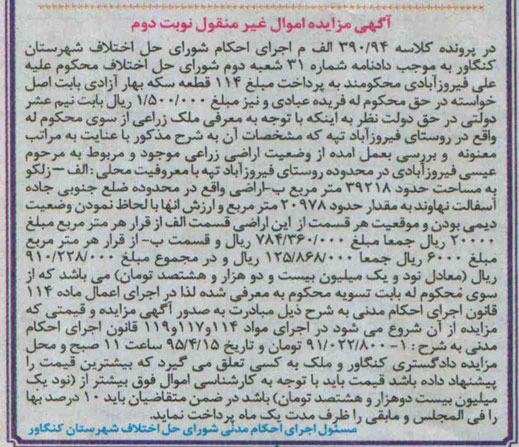 آگهی مزایده اموال غیر منقول نوبت دوم
در پرونده کلاسه ۳۹۰/۹۴ الف م اجرای احکام شورای حل اختلاف شهرستان
کنگاور به موجب دادنامه شماره ۳۱ شعبه دوم شورای حل اختلاف محکوم علیه
علی فیروزآبادی محکومند به پرداخت مبلغ ۱۱۴ قطعه سکه بهار آزادی بابت اصل
خواسته در حق محکوم له فریده عبادی و نیز مبلغ ۱/۵۰۰/۰۰۰ ریال بابت نیم عشر
دولتی در حق دولت نظر به اینکه با توجه به معرفی ملک زراعی از سوی محکوم له
واقع در روستای فیروزآباد تپه که مشخصات آن به شرح مذکور با عنایت به مراتب
معنونه و بررسی بعمل امده از وضعیت اراضی زراعی موجود و مربوط به مرحوم
عیسی فیروزآبادی در محدوده روستای فیروزآباد تپه با معروفیت محلی : الف – زلکو
به مساحت حدود ۳۹۲۱۸ متر مربع ب-اراضی واقع در محدوده ضلع جنوبی جاده
آسفالت نهاوند به مقدار حدود ۲۰۹۷۸ متر مربع و ارزش انها با لحاظ نمودن وضعیت
دیمی بودن و موقعیت هر قسمت از این اراضی قسمت الف از قرار هر متر مربع مبلغ
۲۰۰۰۰ ریال جمعا مبلغ ۷۸۴/۳۶۰/۰۰۰ ریال و قسمت ب- از قرار هر متر مربع
مبلغ ۶۰۰۰ ریال جمعا ۱۲۵/۸۶۸/۰۰۰ ریال و در مجموع مبلغ ۹۱۰/۲۲۸/۰۰۰
ریال (معادل نود و یک میلیون بیست و دو هزار و هشتصد تومان) می باشد که از
سوی محکوم له بابت تسویه محکوم به معرفی شده لذا در اجرای اعمال ماده ۱۱۴
قانون اجرای احکام مدنی به شرح ذیل مبادرت به صدور آگهی مزایده و قیمتی که
مزایده از آن شروع می شود در اجرای مواد ۱۱۴و۱۱۷و۱۱۹ قانون اجرای احکام
مدنی به شرح : ۱- ۹۱/۰۲۲/۸۰۰ تومان و تاریخ ۹۵/۴/۱۵ ساعت ۱۱ صبح و محل
مزایده دادگستری کنگاور و ملک به کسی تعلق می گیرد که بیشترین قیمت را
پیشنهاد داده باشد قیمت باید با توجه به کارشناسی اموال فوق بیشتر از (نود یک
میلیون بیست دوهزار و هشتصد تومان) باشد در ضمن متقاضیان باید ۱۰ درصد بها
را فی المجلس و مابقی را ظرف مدت یک ماه پرداخت نماید.
مسئول اجرای احکام مدنی شورای حل اختلاف شهرستان کنگاور